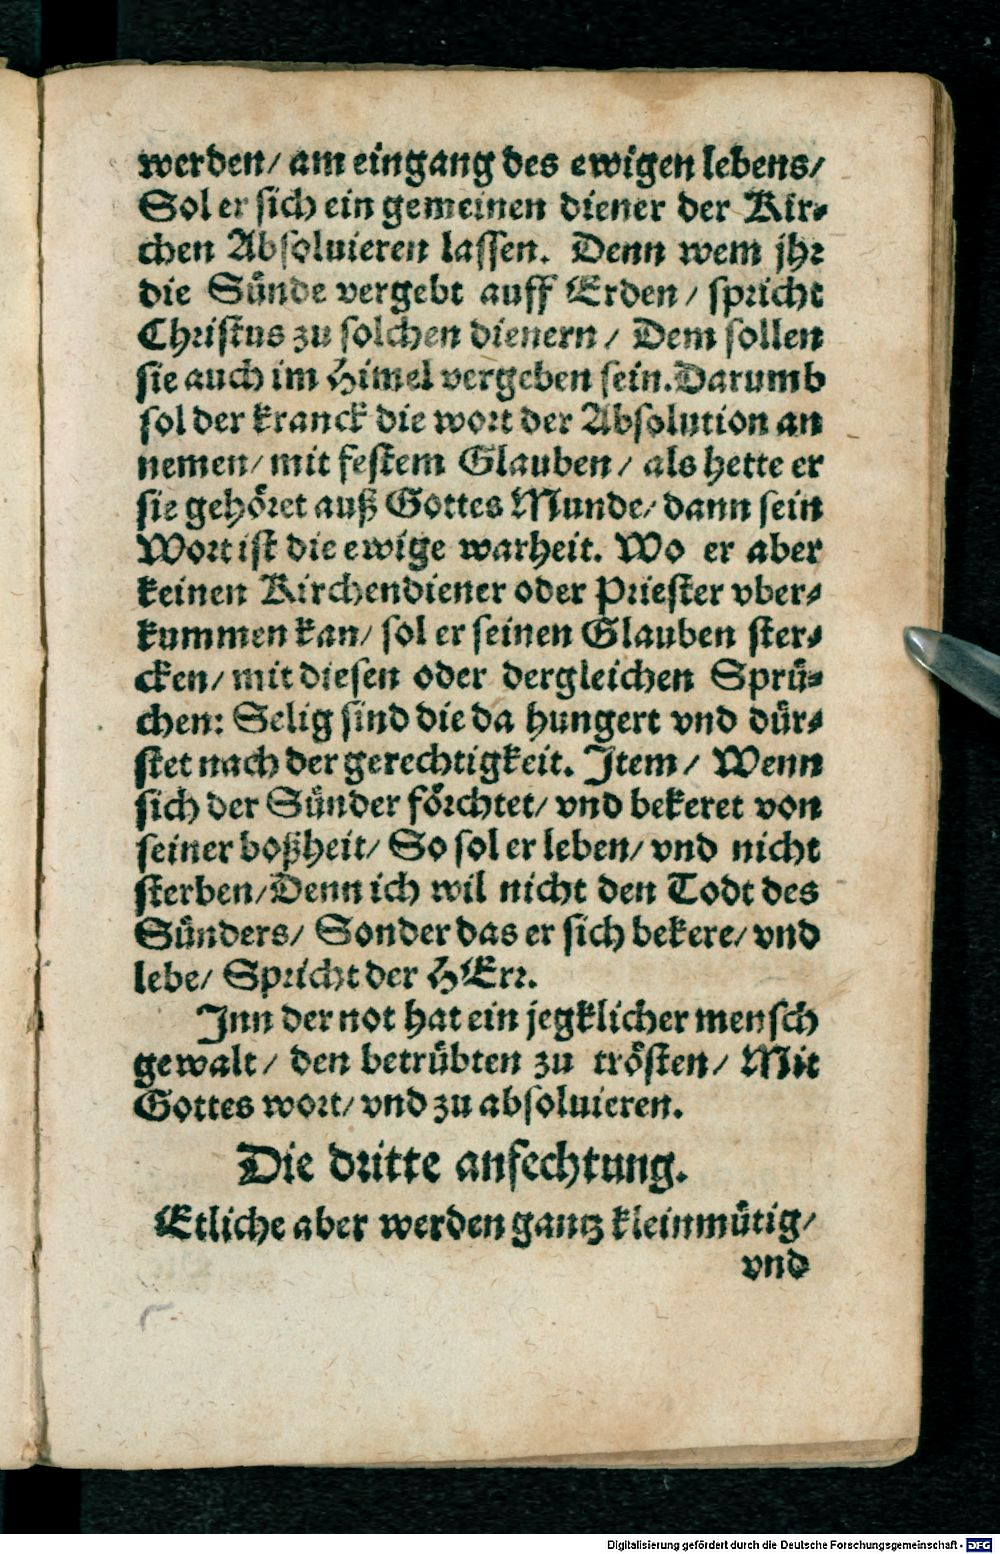 werden/ am eingang des ewigen lebens/
Sol er sich ein gemeinen diener der Kir-
chen Absoluieren lassen. Denn wem jhr
die Sünde vergebt auff Erden/ spricht
Christus zu solchen dienern/ Dem sollen
sie auch im Himel vergeben sein. Darumb
sol der kranck die wort der Absolution an
nemen/ mit festem Glauben/ als hette er
sie gehöret auß Gottes Munde/ dann sein
Wort ist die ewige warheit. Wo er aber
keinen Kirchendiener oder Priester vber-
kummen kan/ sol er seinen Glauben ster-
cken/ mit diesen oder dergleichen Sprü-
chen: Selig sind die da hungert vnd dür-
stet nach der gerechtigkeit. Item/ Wenn
sich der Sünder förchtet/ vnd bekeret von
seiner boßheit/ So sol er leben/ vnd nicht
sterben/ Denn ich wil nicht den Todt des
Sünders/ Sonder das er sich bekere/ vnd
lebe/ Spricht der HErr.
Inn der not hat ein jegklicher mensch
gewalt/ den betrübten zu trösten/ Mit
Gottes wort/ vnd zu absoluieren.
Die dritte anfechtung.
Etliche aber werden gantz kleinmütig/
vnd
Digitalisierung gefördert durch die Deutsche Forschungsgemeinschaft - DFG